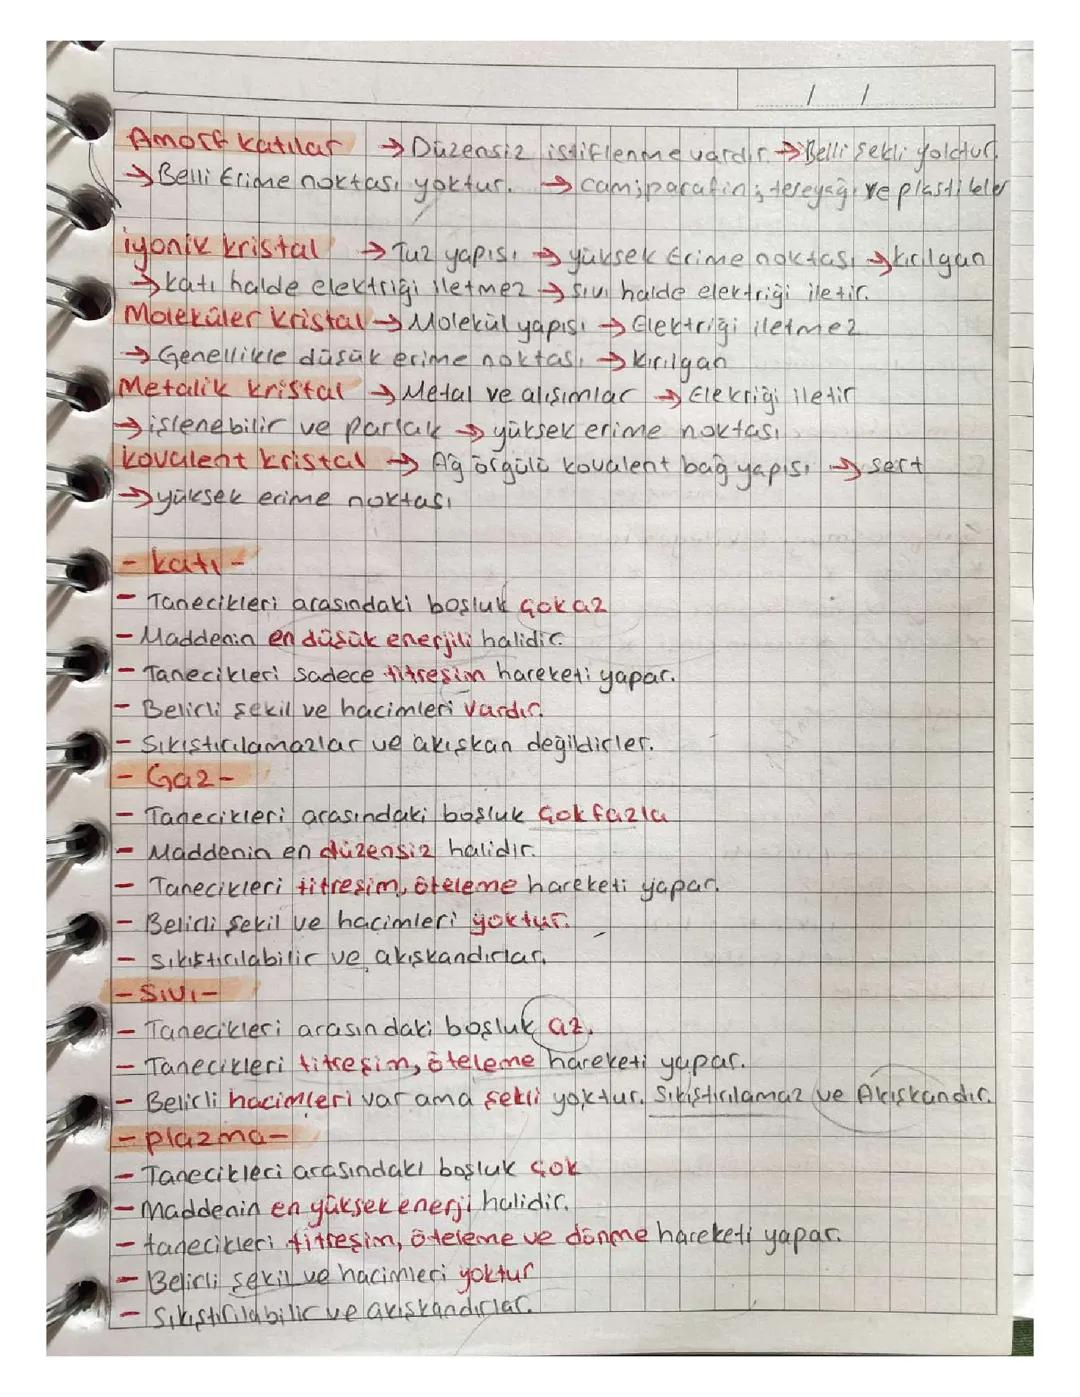 / /
Amorf katılar → Düzensiz istiflenme vardır. → Belli şekli yoktur.
→ Belli Erime noktası yoktur. → cam, parafin, tereyağı ve plastikler
iyonik kristal → Tuz yapısı → yüksek Erime noktası → kırılgan
→ katı halde elektriği iletmez → sıvı halde elektriği iletir.
Moleküler kristal → Molekül yapısı → Elektriği iletmez
→ Genellikle düşük erime noktası → kırılgan
Metalik kristal → Metal ve alışımlar → Elekriği iletir
→ işlenebilir ve parlak → yüksek erime noktası
kovalent kristal → Ağ örgülü kovalent bağ yapısı → sert
→ yüksek erime noktası
- katı -
- Tanecikleri arasındaki boşluk çok az
- Maddenin en düşük enerjili halidir.
- Tanecikleri sadece titreşim hareketi yapar.
- Belirli şekil ve hacimleri vardır.
- Sıkıştırılamazlar ve akışkan değildirler.
- Gaz -
- Tanecikleri arasındaki boşluk çok fazla
- Maddenin en düzensiz halidir.
- Tanecikleri titreşim, öteleme hareketi yapar.
- Belirli şekil ve hacimleri yoktur.
- sıkıştırılabilir ve akışkandırlar.
- Sıvı -
- Tanecikleri arasındaki boşluk az.
- Tanecikleri titreşim, öteleme hareketi yapar.
- Belirli hacimleri var ama şekli yoktur. Sıkıştırılamaz ve Akışkandır.
- plazma -
- Tanecikleri arasındaki boşluk çok
- Maddenin en yüksek enerji halidir.
- tanecikleri titreşim, öteleme ve dönme hareketi yapar.
- Belirli şekil ve hacimleri yoktur
- Sıkıştırılabilir ve akışkandırlar.